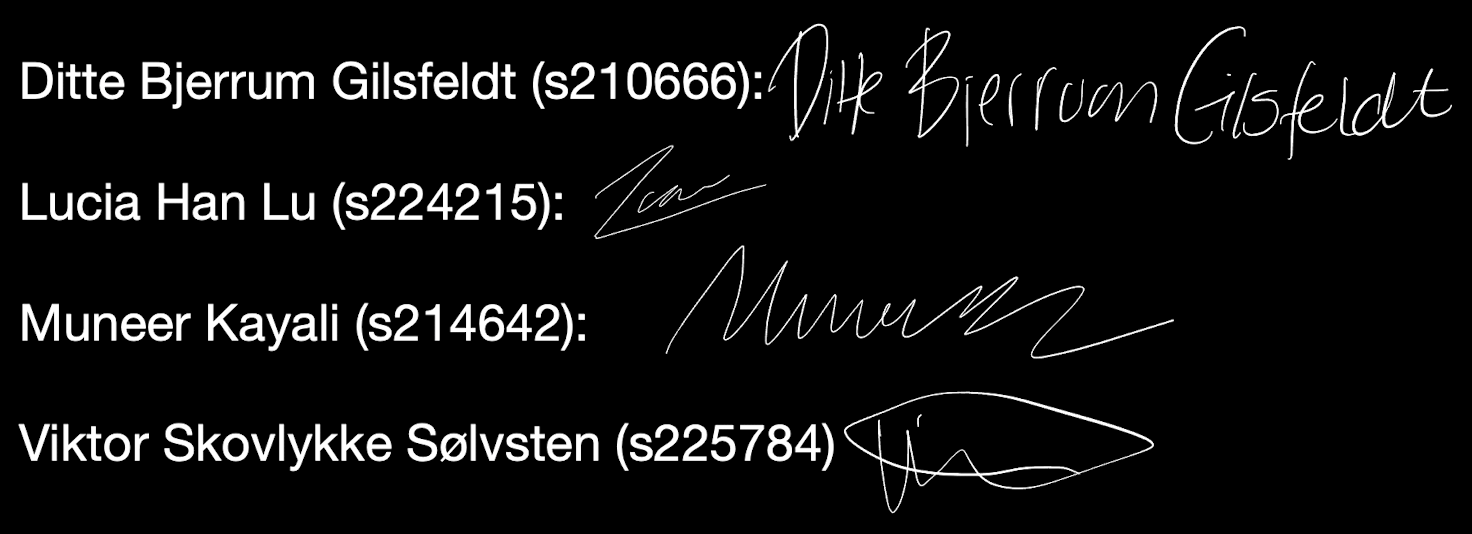 Ditte Bjerrum Gilsfeldt (s210666): Ditte Bjerrum Gilsfeldt
Lucia Han Lu (s224215):
Muneer Kayali (s214642):
Viktor Skovlykke Sølvsten (s225784)